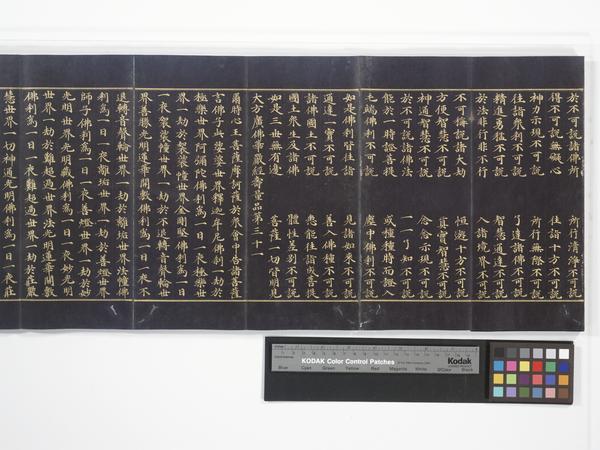 於不可說諸佛所　所行清淨不可說
得不可說無礙心　往詣十方不可說
神力示現不可說　所行無際不可說
往詣眾剎不可說　了達諸佛不可說
精進勇猛不可說　智慧通達不可說
於法非行非不行　入諸境界不可說
不可稱說諸大劫　恒遊十方不可說
方便智慧不可說　真實智慧不可說
神通智慧不可說　念念示現不可說
於不可說諸佛法　一一了知不可說
能於一時證菩提　或種種時而證入
毛端佛剎不可說　塵中佛剎不可說
如是佛剎皆往詣　見諸如來不可說
通達一實不可說　善入佛種不可說
諸佛國土不可說　悉能往詣成菩提
國土眾生及諸佛　體性差別不可說
如是三世無有邊　菩薩一切皆明見
大方廣佛華嚴經壽量品第三十一
爾時心王菩薩摩訶薩於眾會中告諸菩薩
言佛子此娑婆世界釋迦牟尼佛剎一劫於
極樂世界阿彌陀佛剎為一日一夜極樂世
界一劫於袈裟幢世界金剛堅佛剎為一日
一夜袈裟幢世界一劫於不退轉音聲輪世
界善勝光明蓮華開敷佛剎為一日一夜不
退轉音聲輪世界一劫於離垢世界法幢佛
剎為一日一夜離垢世界一劫於善燈世界
師子佛剎為一日一夜善燈世界一劫於妙
光明世界光明藏佛剎為一日一夜妙光明
世界一劫於難超過世界法光明蓮華開敷
佛剎為一日一夜難超過世界一劫於莊嚴
慧世界一切神通光明佛剎為一日一夜莊
KODAK Color Control Patches
Kodak
Blue Cyan Green Yellow Red Magenta White 3/Color Black